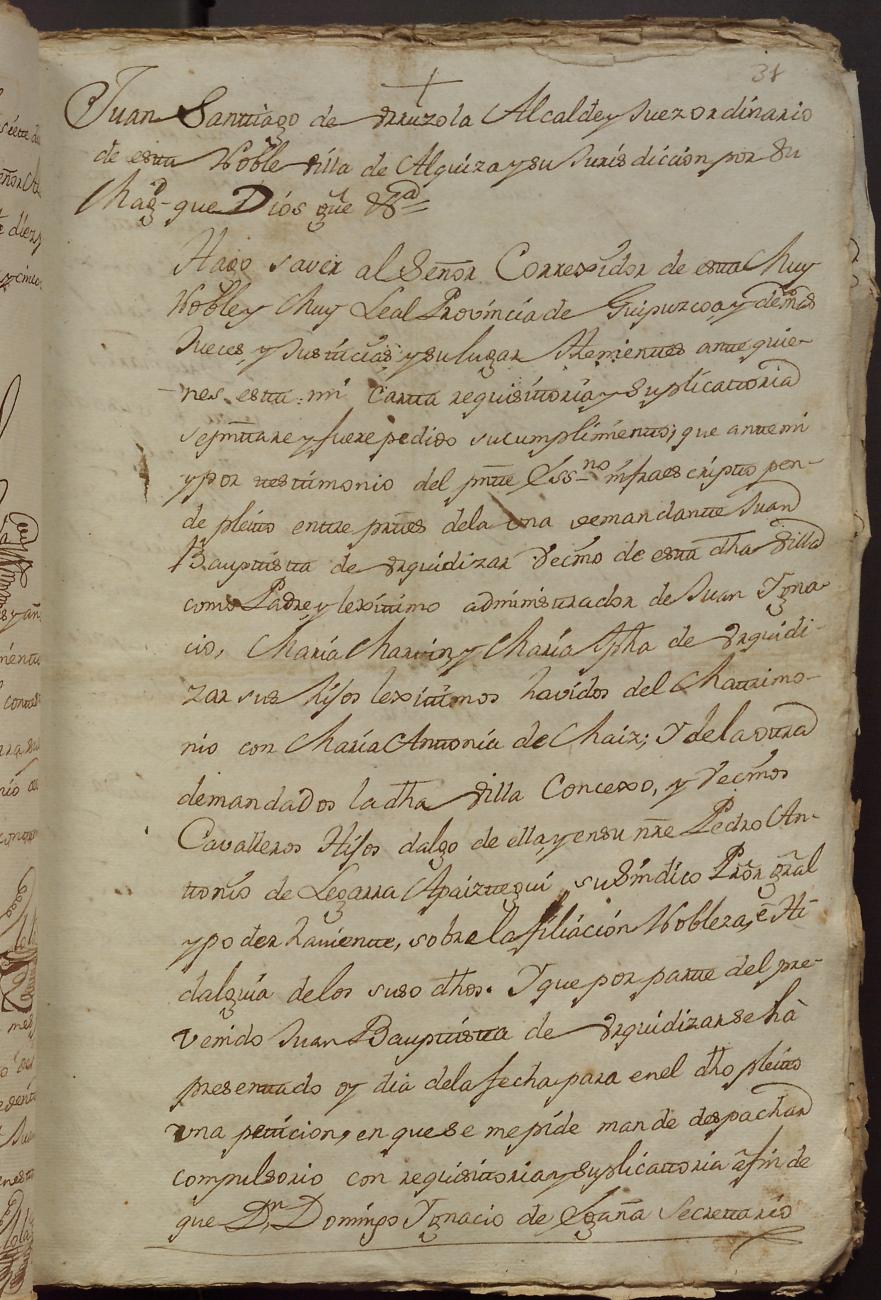 31
Juan Santiago de Urruzola Alcalde y Juez ordinario
de esta Noble Villa de Alquiza y su Jurisdiccion por Su
Mag.d que Dios gue &ª
Hago saver al Señor Correxidor de esta Muy
Noble y Muy Leal Provincia de Guipuzcoa, y demas
Jueces, y Justicias y su lugar thenientes ante quie-
nes esta mi Carta requisitoria y suplicattoria
se pmtare y fuere pedido su cumplimiento, que ante mi
y por testimonio del pmte Essno infraescripto pen-
de pleito entre prtes de la una demandante Juan
Bauptista de Urquidizar vecino de esta dha Villa
como Padre y lexittimo administrador de Juan Igna-
cio, Maria Martin y Maria Jpha de Urquidi-
zar sus hijos lexittimos havidos del Matrimo-
nio con Maria Antonia de Maiz; y de la otra
demandados la dha Villa Concexo, y vecinos
Cavalleros Hijos dalgo de ella y en su nre Pedro An-
tonio de Legarra Apaiztegui su Sindico Pror gral
y poder haviente, sobre la filiacion Nobleza, e Hi-
dalguia de los suso dhos. Y que por parte del pre-
venido Juan Bauptista de Urquidizar se hà
presentado oy dia de la fecha para en el dho pleito
una peticion, en que se me pide mande despachar
compulsorio con requisitoria y suplicattoria à fin de
que Dn Domingo Ignacio de Egaña Secrettario